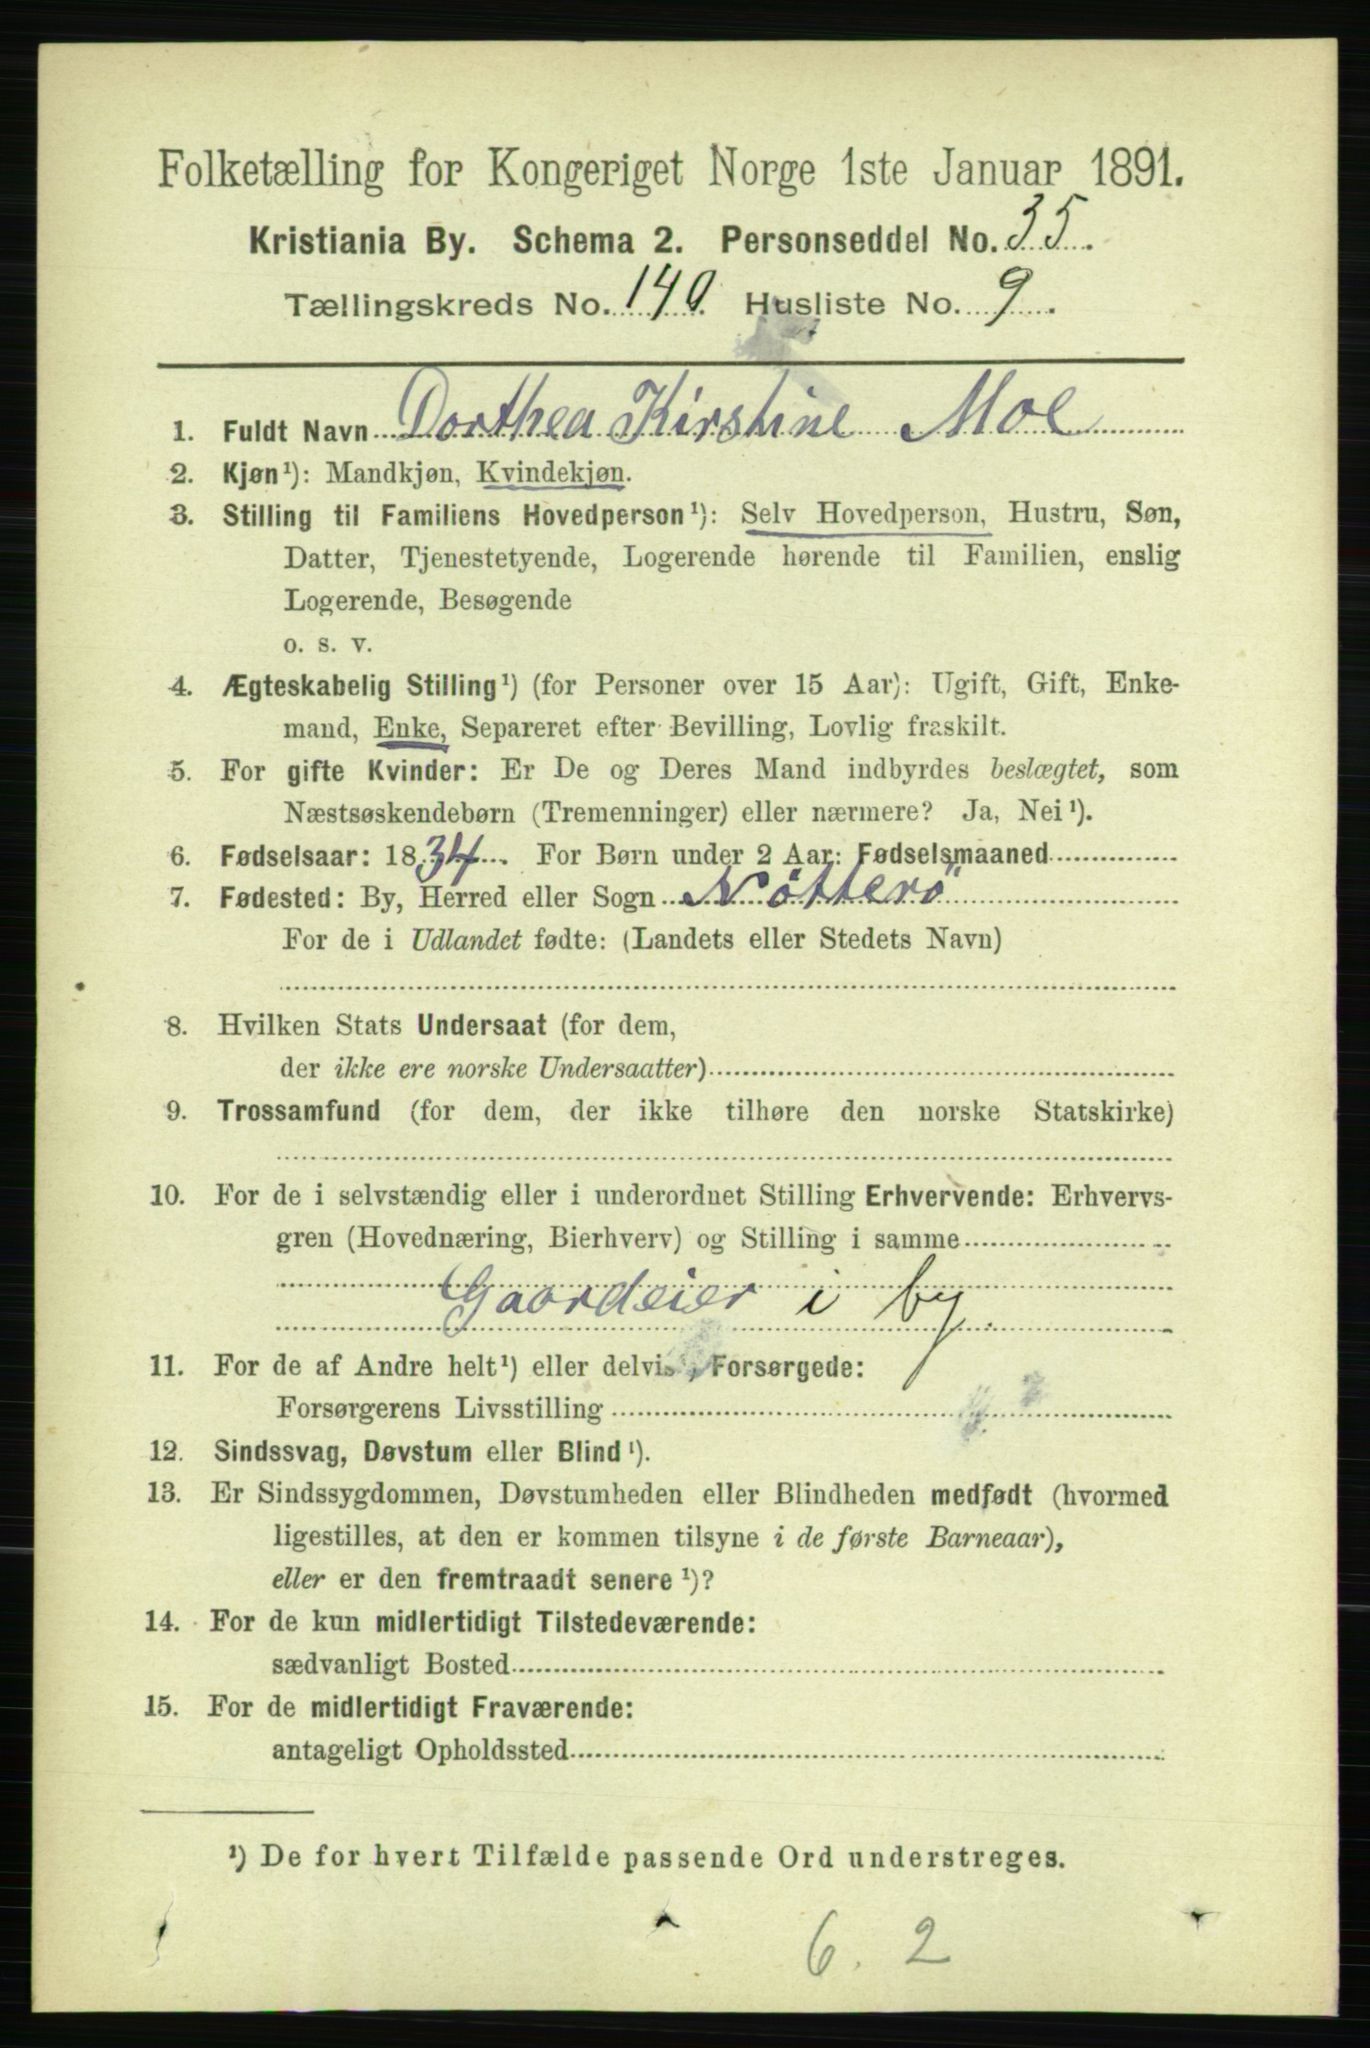 Folketælling for Kongeriget Norge 1ste Januar 1891.
Kristiania By. Schema 2. Personseddel No. 35.
Tællingskreds No. 140. Husliste No. 9.
1. Fuldt Navn Dorthea Kirstine Moe
2. Kjøn¹): Mandkjøn, Kvindekjøn.
3. Stilling til Familiens Hovedperson¹): Selv Hovedperson, Hustru, Søn,
Datter, Tjenestetyende, Logerende hørende til Familien, enslig
Logerende, Besøgende
o. s. v.
4. Ægteskabelig Stilling¹) (for Personer over 15 Aar): Ugift, Gift, Enke-
mand, Enke, Separeret efter Bevilling, Lovlig fraskilt.
5. For gifte Kvinder: Er De og Deres Mand indbyrdes beslægtet, som
Næstsøskendebørn (Tremenninger) eller nærmere? Ja, Nei¹).
6. Fødselsaar: 1834. For Børn under 2 Aar: Fødselsmaaned
7. Fødested: By, Herred eller Sogn Nötterö
For de i Udlandet fødte: (Landets eller Stedets Navn)
8. Hvilken Stats Undersaat (for dem,
der ikke ere norske Undersaatter)
9. Trossamfund (for dem, der ikke tilhøre den norske Statskirke)
10. For de i selvstændig eller i underordnet Stilling Erhvervende: Erhvervs-
gren (Hovednæring, Bierhverv) og Stilling i samme
Gaardeier i by.
11. For de af Andre helt¹) eller delvis¹) Forsørgede:
Forsørgerens Livsstilling
12. Sindssvag, Døvstum eller Blind¹).
13. Er Sindssygdommen, Døvstumheden eller Blindheden medfødt (hvormed
ligestilles, at den er kommen tilsyne i de første Barneaar),
eller er den fremtraadt senere¹)?
14. For de kun midlertidigt Tilstedeværende:
sædvanligt Bosted
15. For de midlertidigt Fraværende:
antageligt Opholdssted
¹) De for hvert Tilfælde passende Ord understreges.
6. 2